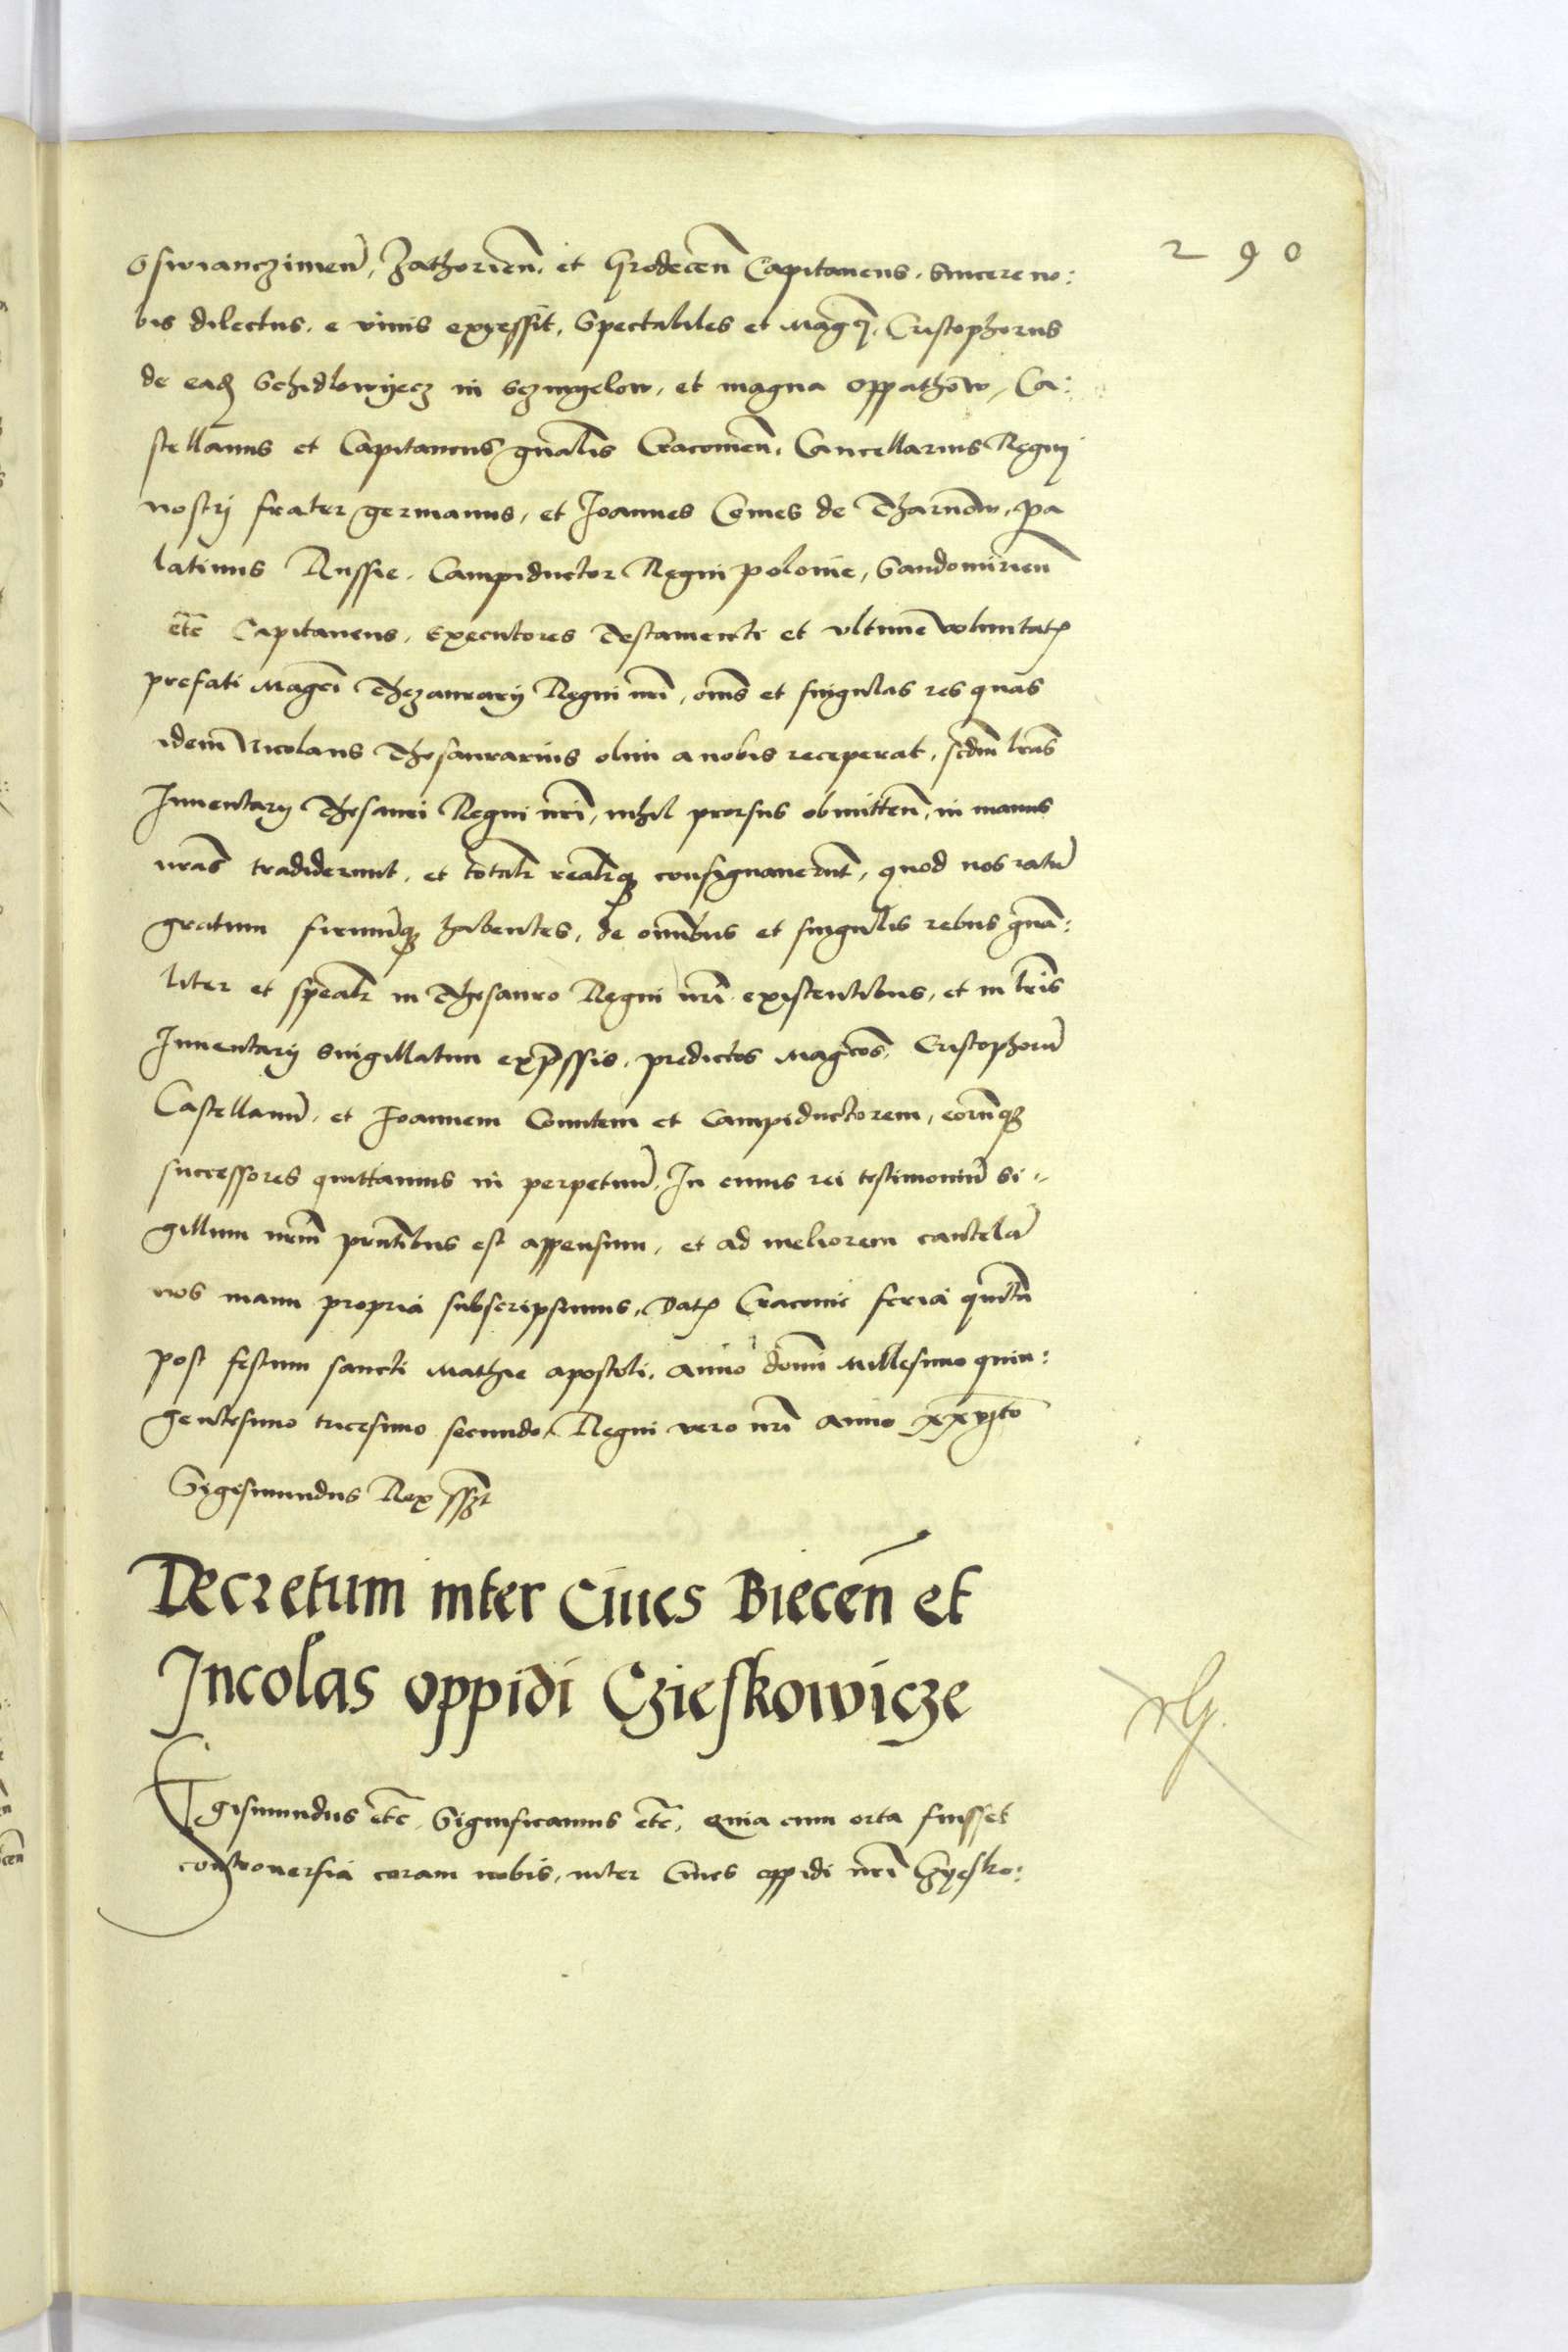 290
Oswianczimeñ, Zathorieñ. et Grodeceñ Capitaneus. Sincere no:
bis dilectus. e viuis excessit, Spectabiles et Mag͠ci. Cristophorus
de eadē Schidlowyecz in Szmyelow, et magna Oppathow, Ca:
stellanus et Capitaneus g͠nalis Cracouieñ. Cancellarius Regnj
nostrj frater germanus, et Joannes Comes de Tharnow, pa
latinus Russie. Campiductor Regni polonie, Sandomirieñ
et͠c Capitaneus, Executores Testamenti et vltime voluntatꝭ
prefati Mag͠ci Thezaurarij Regni n͠ri, om͠s et singulas res quas
idem Nicolaus Thesaurarius olim a nobis receperat, s͠cdm l͠ras
Inuentarij Thesauri Regni n͠ri, nihil prorsus obmitteñ, in manus
n͠ras tradiderunt, et total͠r real͠rqꝫ consignauerunt, quod nos ratū
gratum firmūqꝫ habentes, de om͠ibus et singulis rebus g͠na:
liter et sp͠eal͠r in Thesauro Regni n͠ri existentibus, et in l͠ris
Inuentarij Singillatim exp͠ssis, predictos Mag͠cos, Cristophorū
Castellanū, et Joannem Comitem et Campiductorem, eorūqꝫ
successores quittamus in perpetuū, In cuius rei testimoniū Si-
gillum n͠rm pn͠tibus est appensum, et ad meliorem cautelā
nos manu propria subscripsimus, Datꝭ Cracouie feria quinta
post festum sancti Mathie apostoli, Anno domi Millesimo quin:
gentesimo tricesimo secundo, Regni vero n͠ri Anno xxvjto
Sigismundus Rex ss͠zt
Decretum inter Ciues Bieceñ et
Incolas oppidi Czieskowicze
Sigismundus et͠c. Significamus et͠c. Quia cum orta fuisset
controuersia coram nobis, inter Ciues oppidi n͠ri Czyesko: